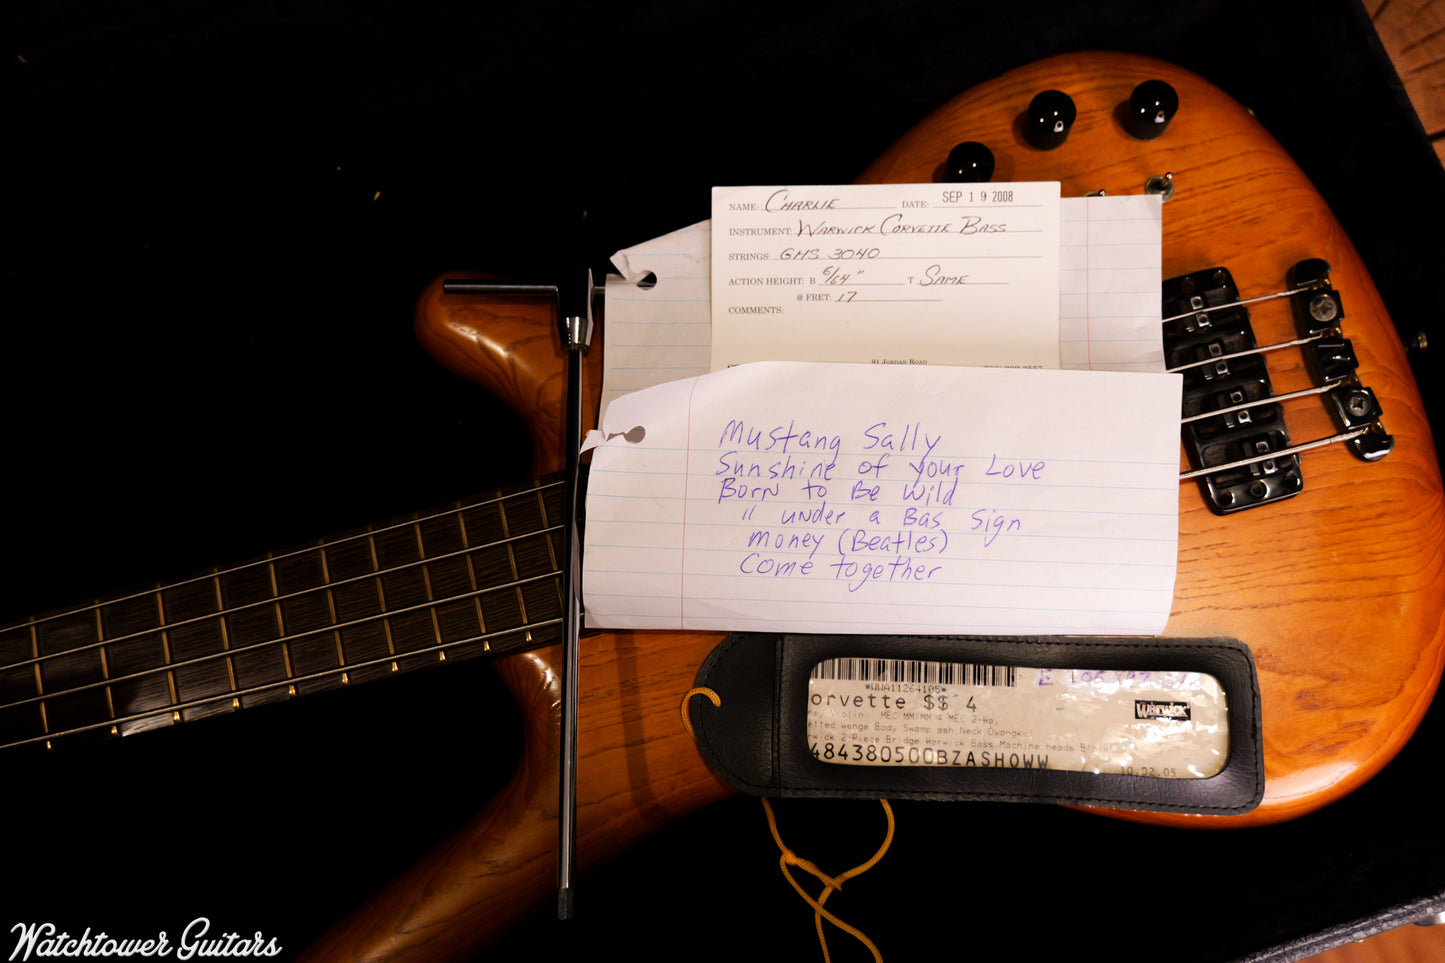 NAME: CHARLIE DATE: SEP 19 2008
INSTRUMENT: WARWICK CORVETTE BASS
STRINGS: GHS 3040
ACTION HEIGHT: B 6/64" T SAME
@ FRET: 17
COMMENTS:
91 JORDAN ROAD
Mustang Sally
Sunshine of your Love
Born to Be Wild
" under a Bas Sign
money (Beatles)
Come together
*WWA11264105*
orvette $$ 4
Warwick
MEC MM/MM 4 MEC 2-Way
wenge Body Swamp ash Neck Ovangkol
2-Piece Bridge Warwick Bass Machine heads Black
484380500BZASHOWW
10.02.05
Watchtower Guitars